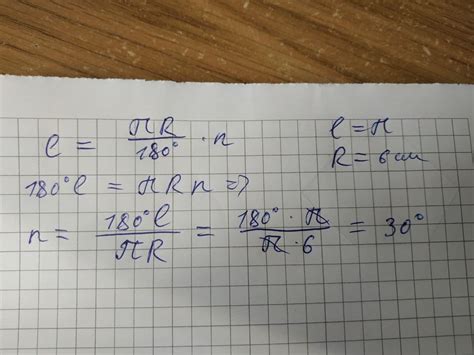 l = ПR/180° · n
l = П
R = 6 см
180°l = ПRn ⇒
n = 180°l/ПR = 180° · П/П · 6 = 30°